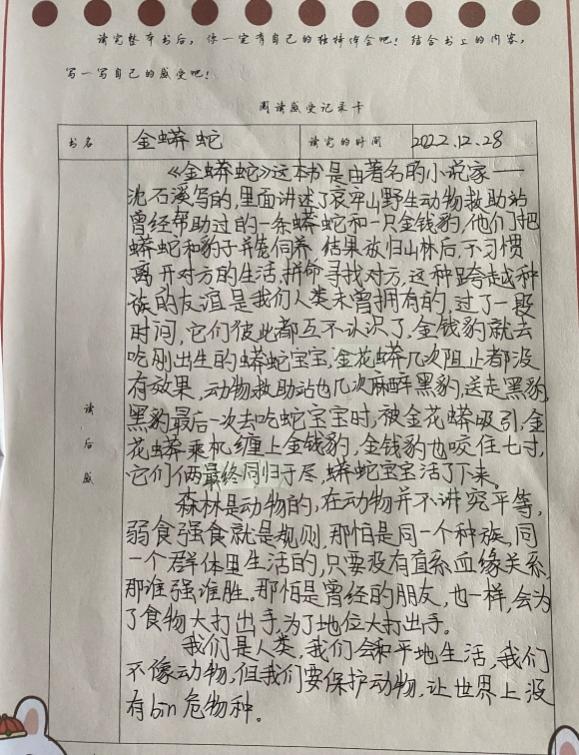 读完整本书后，你一定有自己的独特体会吧！结合书上的内容，
写一写自己的感受吧！
阅读感受记录卡
书名 金蟒蛇 读完的时间 2022.12.28
《金蟒蛇》这本书是由著名的小说家——
沈石溪写的，里面讲述了哀牢山野生动物救助站
曾经帮助过的一条蟒蛇和一只金钱豹，他们把
蟒蛇和豹子并笼饲养，结果放归山林后，不习惯
离开对方的生活，拼命寻找对方，这种跨越种
族的友谊是我们人类未曾拥有的，过了一段
时间，它们彼此都互不认识了，金钱豹就去
吃刚出生的蟒蛇宝宝，金花蟒几次阻止都没
有效果，动物救助站也几次麻醉黑豹，送走黑豹，
黑豹最后一次去吃蛇宝宝时，被金花蟒吸引，金
花蟒乘机缠上金钱豹，金钱豹也咬住七寸，
它们俩最终同归于尽，蟒蛇宝宝活了下来。
森林是动物的，在动物并不讲究平等，
弱食强食就是规则，那怕是同一个种族，同
一个群体里生活的，只要没有直系血缘关系，
那谁强谁胜。那怕是曾经的朋友，也一样，会为
了食物大打出手，为了地位大打出手。
我们是人类，我们会和平地生活，我们
不像动物，但我们要保护动物，让世界上没
有bin危物种。
读后感